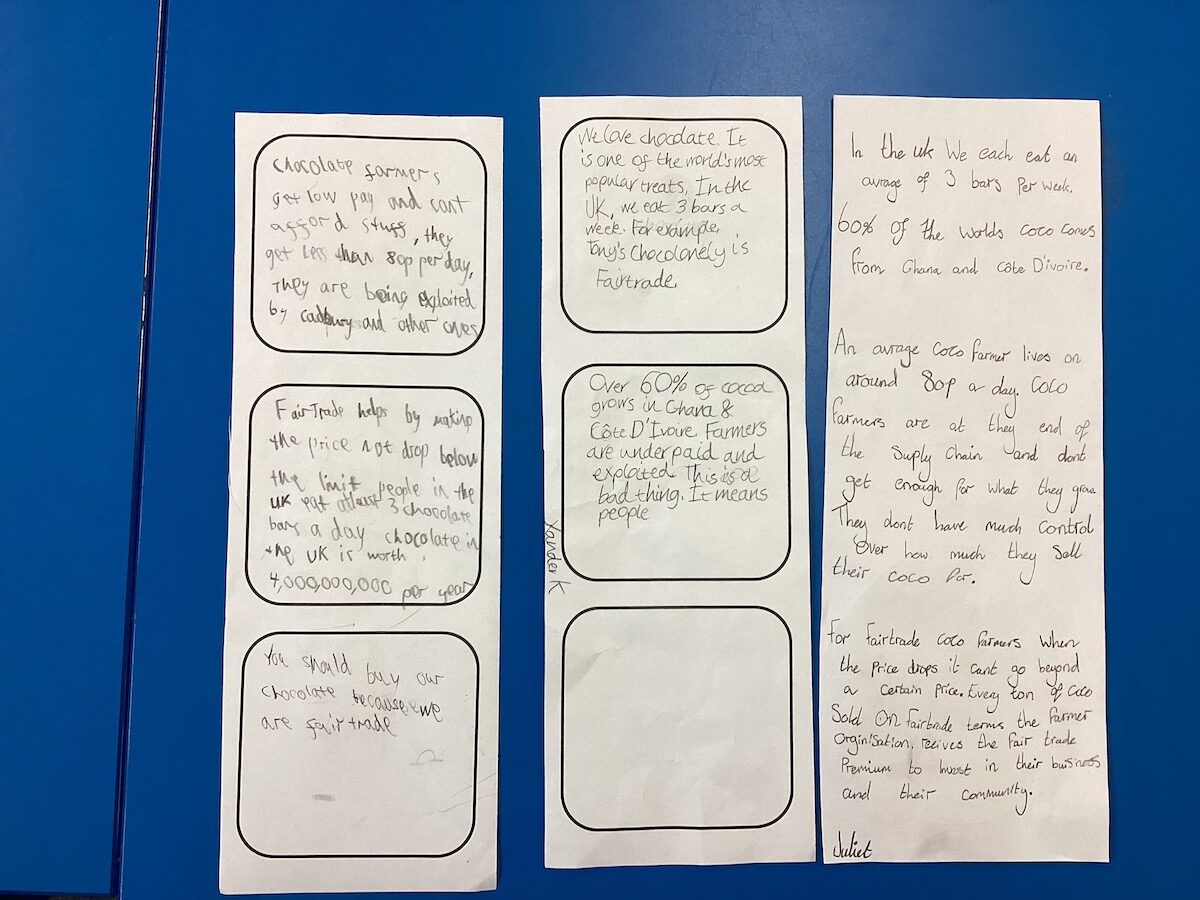 Chocolate farmers
get low pay and cant
afford stuff, they
get less than 80p per day,
They are being exploited
by cadbury and other ones
FairTrade helps by making
the price not drop below
the limit people in the
UK eat atleast 3 chocolate
bars a day chocolate in
the UK is worth
4,000,000,000 per year
You should buy our
chocolate because we
are fair trade
We love chocolate. It
is one of the world's most
popular treats. In the
UK, we eat 3 bars a
week. For example,
Tony's Chocolonely is
Fairtrade.
Over 60% of cocoa
grows in Ghana &
Côte D'Ivoire. Farmers
are underpaid and
exploited. This is a
bad thing. It means
people
Xander K
In the uk We each eat an
avrage of 3 bars Per week.
60% of the worlds coco comes
from Ghana and côte D'ivoire.
An avrage coco farmer lives on
around 80p a day. Coco
farmers are at they end of
the Suply Chain and dont
get enough for what they grow.
They dont have much control
Over how much they Sell
their coco for.
For fairtrade coco farmers when
the price drops it cant go beyond
a certain Price. Every ton of coco
Sold On fairtrade terms the farmer
Orginisation, recives the fair trade
Premium to invest in their buisness
and their community.
Juliet